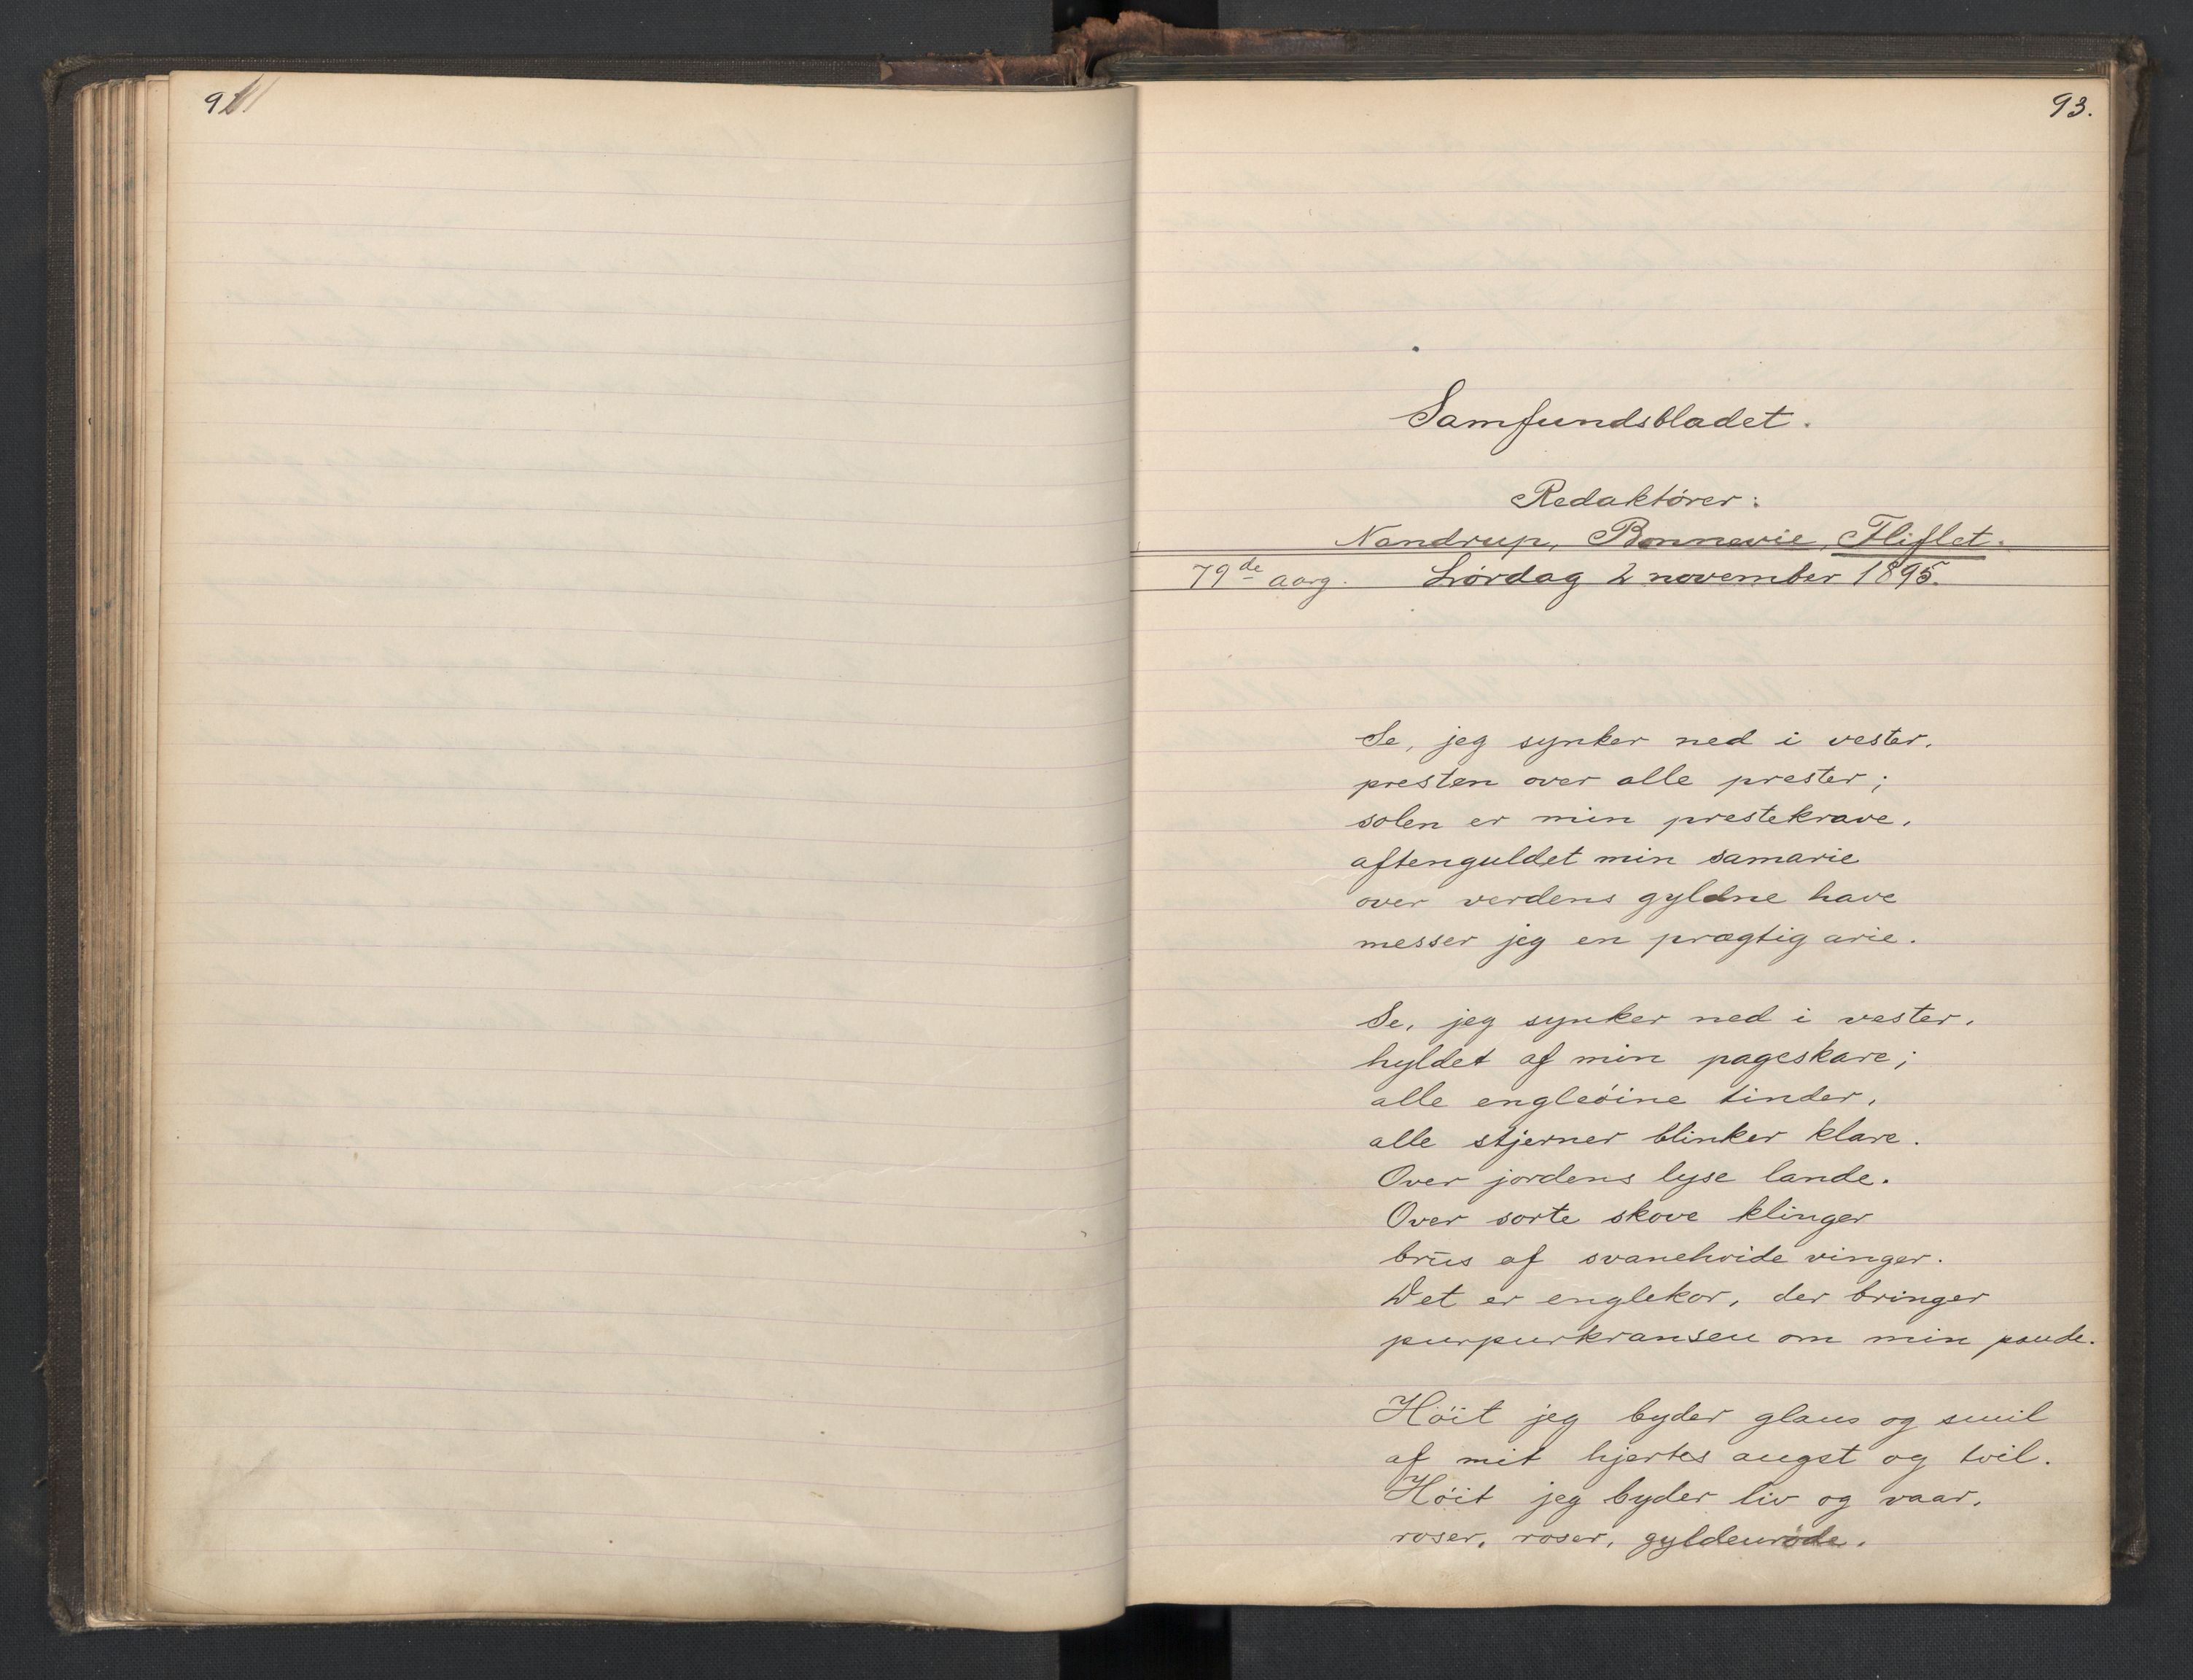 93.
Samfundsbladet.
Redaktörer:
Nandrup, Bonnevie, Fliflet.
79de aarg. Lördag 2 november 1895.
Se, jeg synker ned i vester,
presten over alle prester;
solen er min prestekrave,
aftenguldet min samarie
over verdens gyldne have
messer jeg en prægtig arie.
Se, jeg synker ned i vester,
hyldet af min pageskare;
alle engleöine tinder,
alle stjerner blinker klare.
Over jordens lyse lande.
Over sorte skove klinger
brūs af svanehvide vinger.
Det er englekor, der bringer
purpurkransen om min pande.
Höit jeg byder glans og smil
af mit hjertes angst og tvil.
Höit jeg byder liv og vaar,
roser, roser, gyldenröde.